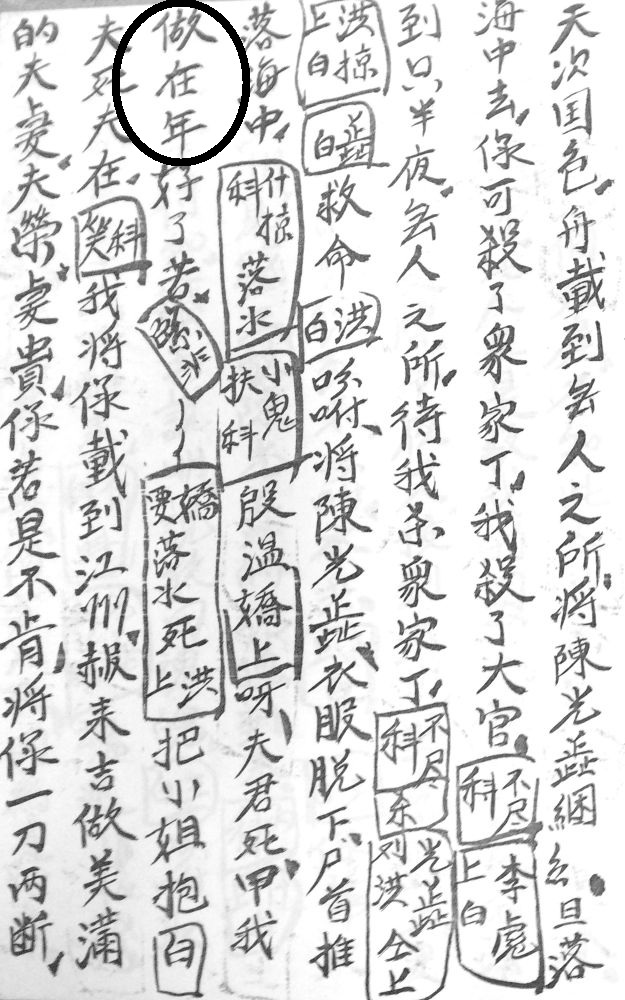 天次国色舟載到無人之所将陳光蕋綑丝旦落
海中去保可殺了衆家丁我殺了大官不尽科李虎上白
到只半夜無人之所待我杀衆家丁不尽科乐光蕋刘洪仝上
洪掠上白蕋白救命洪白吩咐将陳光蕋衣服脱下尸首推
落海中什掠落水科小鬼扶科殷温嬌上呀夫君死甲我
做在年好了苦嬌要落水死洪上把小姐抱白
夫死夫在科笑我将保載到江州報来吉做美滿
的夫妻夫榮妻貴保若是不肯将保一刀两断